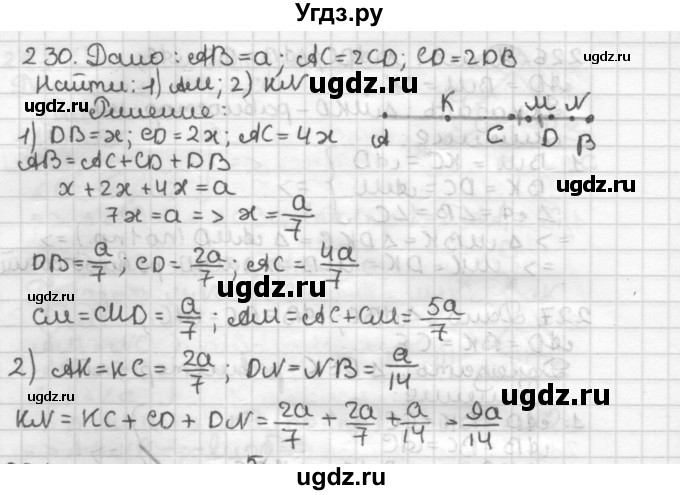 Угдз.ру
230. Дано: AB = a; AC = 2CD; CD = 2DB
Найти: 1) AM; 2) KN
Решение:
K M N
A C D B
1) DB = x; CD = 2x; AC = 4x
AB = AC + CD + DB
x + 2x + 4x = a
7x = a => x = a/7
DB = a/7; CD = 2a/7; AC = 4a/7
CM = CMD = a/7; AM = AC + CM = 5a/7
2) AK = KC = 2a/7; DN = NB = a/14
KN = KC + CD + DN = 2a/7 + 2a/7 + a/14 = 9a/14
ugdz.ru
ugdz.ru
ugdz.ru
ugdz.ru
ugdz.ru
ugdz.ru
ugdz.ru
ugdz.ru
ugdz.ru
ugdz.ru
ugdz.ru